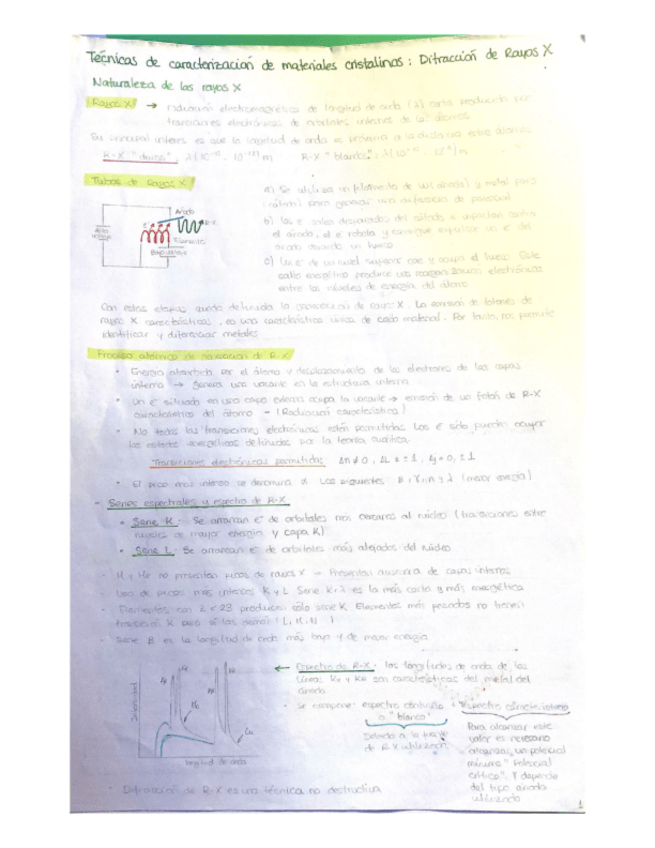 Técnicas de caracterización de materiales cristalinos: Difracción de Rayos X
Naturaleza de los rayos X
Rayos X → radiación electromagnética de longitud de onda (λ) corta producida por
transiciones electrónicas de orbitales internos de los átomos
Su principal interés es que la longitud de onda es próxima a la distancia entre átomos
R-X "duros": R-X "blandos":
Tubos de Rayos X
Ánodo
Filamento
a) Se utiliza un filamento de W (ánodo) y metal puro
para generar una diferencia de potencial
b) los e⁻ salen disparados del cátodo e impactan contra
el ánodo, el e⁻ rebota y consigue expulsar un e⁻ del
ánodo dejando un hueco
c) Un e⁻ de un nivel superior cae y ocupa el hueco. Este
salto energético produce una reorganización electrónica
entre los niveles de energía del átomo
Con estas etapas queda definida la generación de rayos X. La emisión de fotones de
rayos X característicos, es una característica única de cada material. Por tanto, nos permite
identificar y diferenciar metales
Proceso atómico de generación de R-X
• Energía absorbida por el átomo y desplazamiento de los electrones de las capas
interna → genera una vacante en la estructura interna
• Un e⁻ situado en una capa externa ocupa la vacante → emisión de un fotón de R-X
característico del átomo - (Radiación característica)
• No todas las transiciones electrónicas están permitidas. Los e⁻ sólo pueden ocupar
los estados energéticos definidos por la teoría cuántica.
Transiciones electrónicas permitidas: Δn ≠ 0, ΔL = ± 1, Δj = 0, ± 1
• El pico más intenso se denomina α. Los siguientes β, γ, η y λ (menor energía)
- Series espectrales y espectro de R-X
• Serie K: Se arrancan e⁻ de orbitales más cercanos al núcleo (transiciones entre
niveles de mayor energía y capa K)
• Serie L: Se arrancan e⁻ de orbitales más alejados del núcleo
- H y He no presentan picos de rayos X - Presentan ausencia de capas internas
- Uso de picos más intensos K y L. Serie K: λ es la más corta y más energética
- Elementos con Z < 23 producen sólo serie K. Elementos más pesados no tienen
transición K pero sí las demás (L, M, N)
- Serie β es la longitud de onda más bajo y de mayor energía
Intensidad
Mo
Cu
longitud de onda
← Espectro de R-X: las longitudes de onda de las
líneas Kα y Kβ son características del metal del
ánodo
- Se compone: espectro continuo
o "blanco"
Debido a la fuente
de RX utilizada
Espectro característico
Para alcanzar este
valor es necesario
alcanzar un potencial
mínimo "Potencial
crítico". Y depende
del tipo ánodo
utilizado
· Difracción de R-X es una técnica no destructiva
1